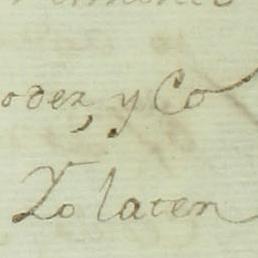 odez, y Co
Yo laten